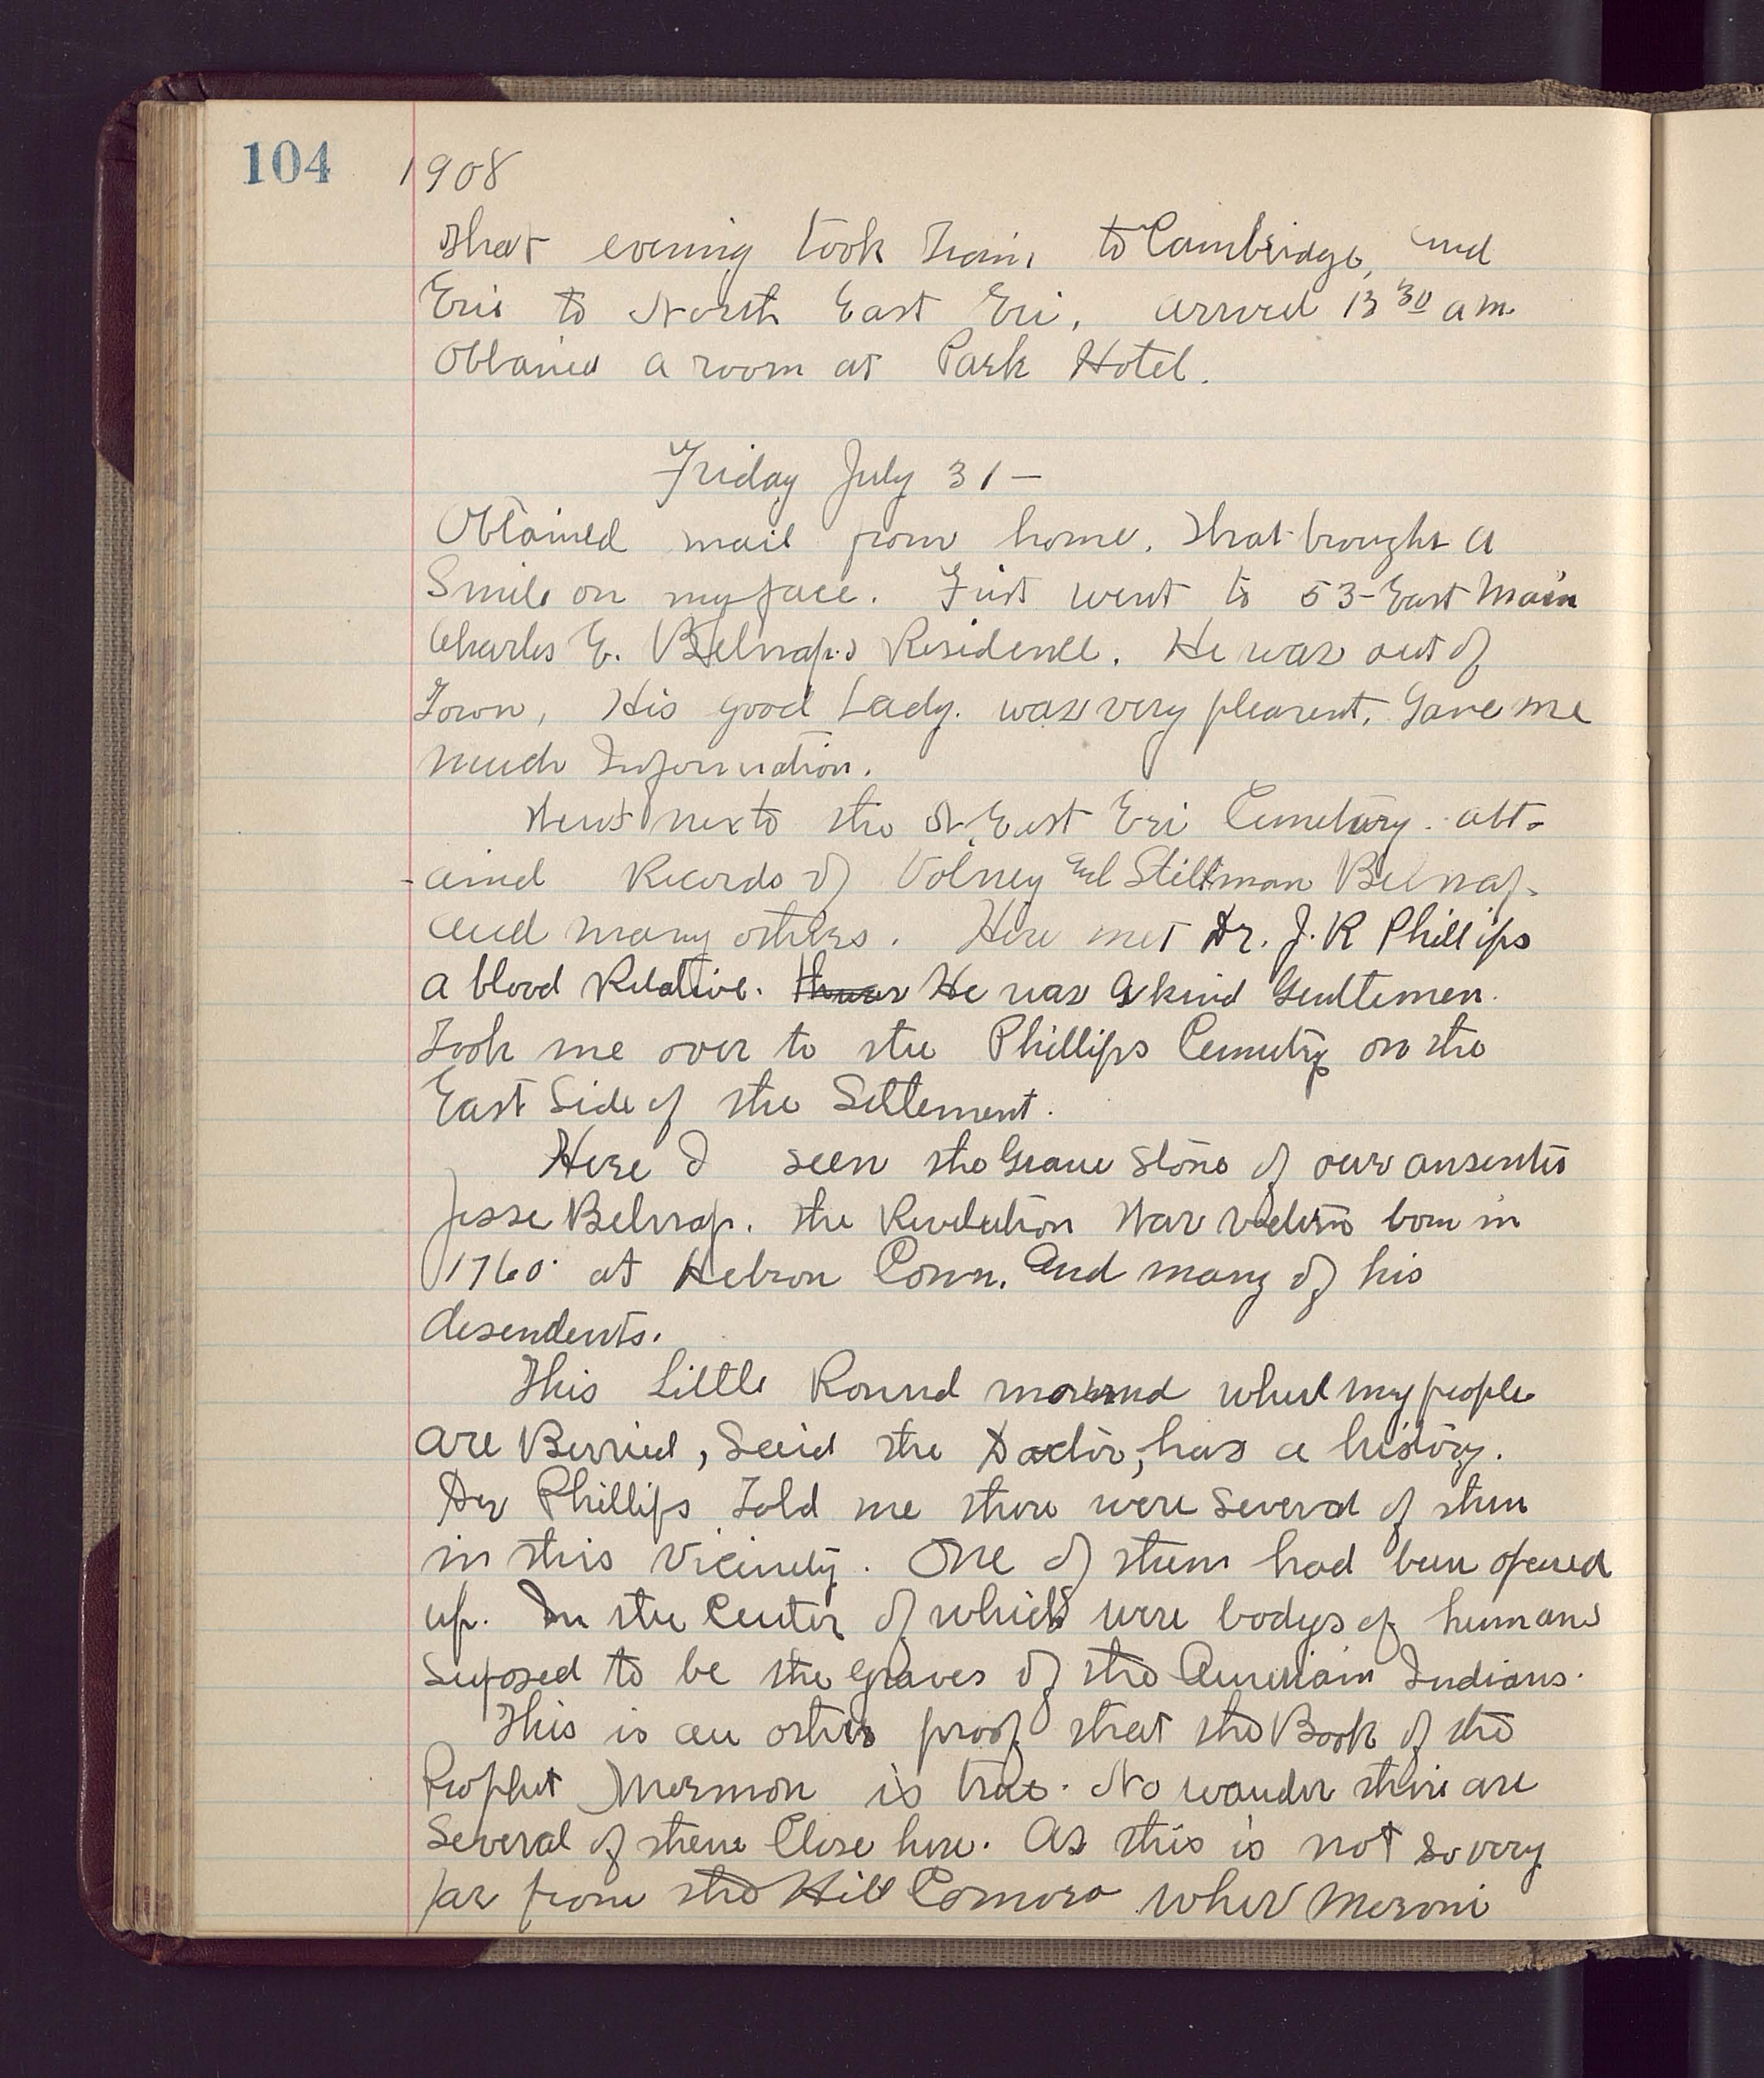 104
1908
that evening took train to Cambridge, and
Erie to North East Eri, arrived 13 30 am
Obtained a room at Park Hotel.
Friday July 31 -
Obtained mail from home. That brought a
Smile on my face. First went to 53-East Main
Charles E. Belnap's Residence. He was out of
Town, His good Lady was very plearent, Gave me
much Information.
Went next to the N. East Eri Cemetary. obt-
-ained Records of Volney and Stillman Belnap
and many others. Here met Dr. J. R Phillips
a blood Relative. He was a kind Gentlemen.
Took me over to the Phillips Cemetry on the
East Side of the Settlement.
Here I seen the Grave Stone of our ansentes
Jesse Belnap. the Revolution War born in
1760 at Hebron Conn. and many of his
desendents.
This Little Round mound where my people
are Berried, Said the Doctor, has a history.
Dr Phillips Told me there were several of them
in this Vicinety. One of them had been opened
up. In the Center of which were bodys of humans
Suposed to be the graves of the American Indians.
This is an other proof that the Book of the
Prophet Mormon is true. No wonder there are
Several of them Close here. As this is not so very
far from the Hill Comoro wher Moroni